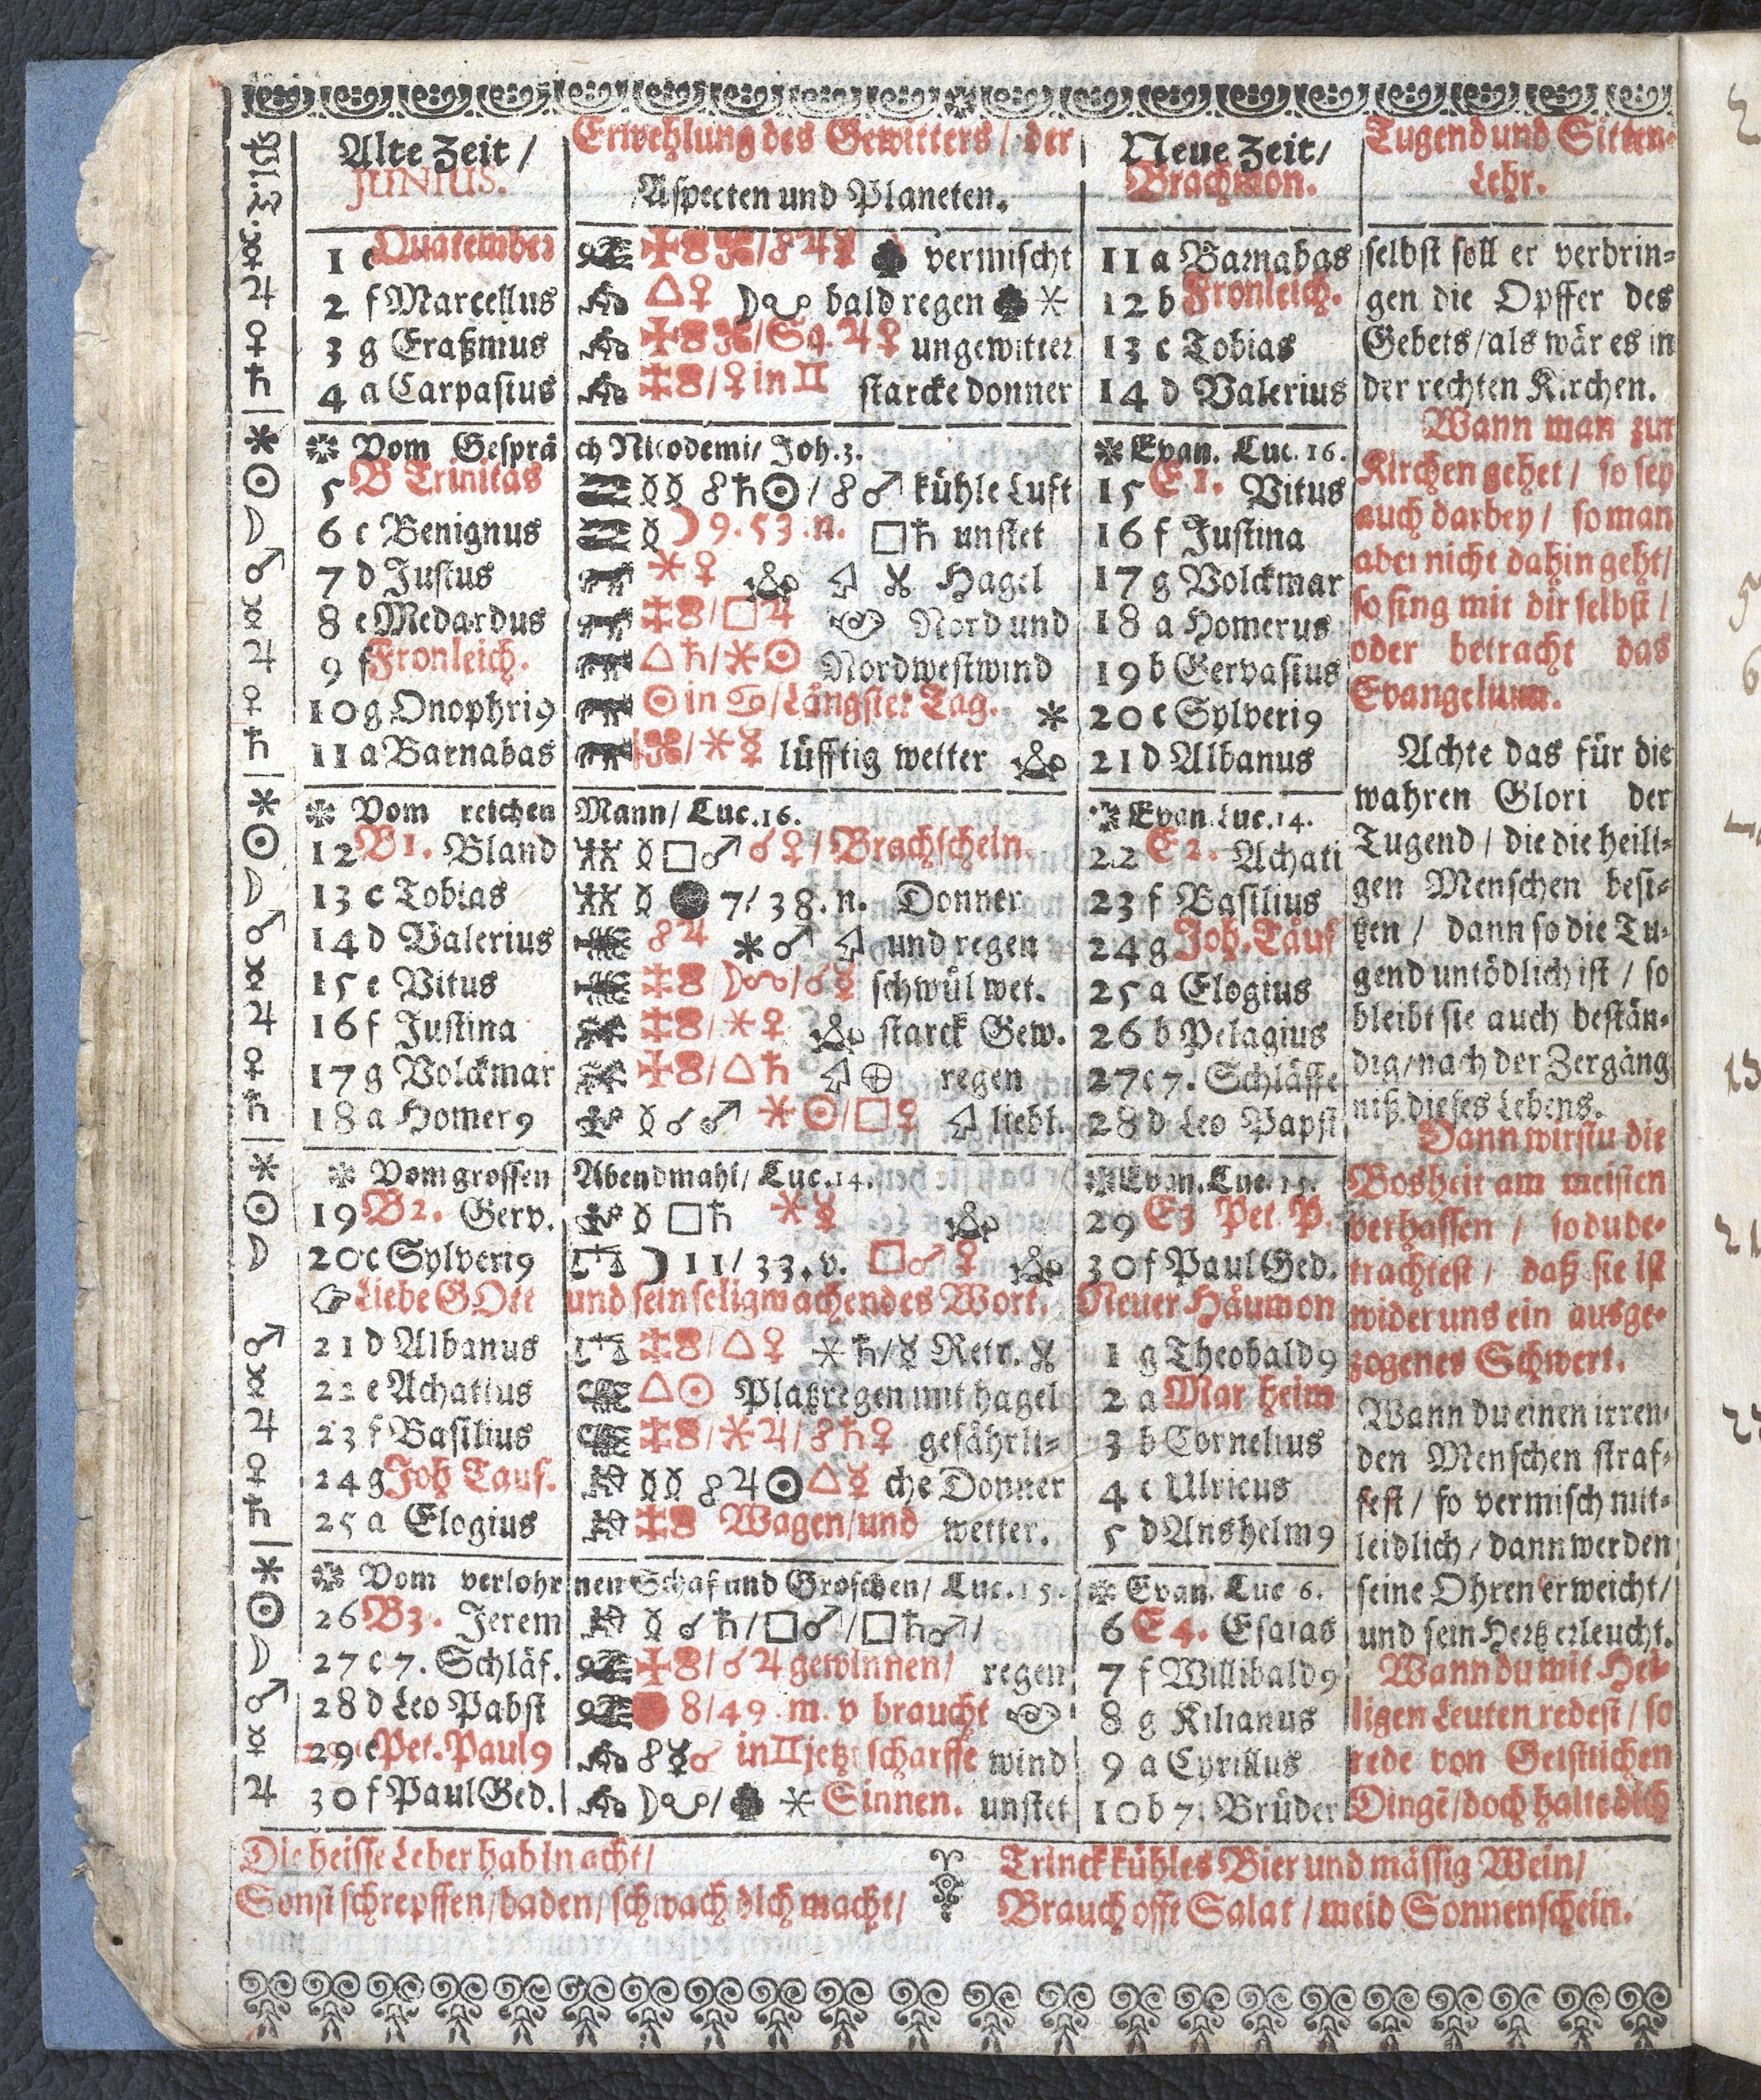 Alte Zeit / Erwehlung des Gewitters / der Neue Zeit / Tugend und Sitten-
JUNIUS. Aspecten und Planeten. Brachmon. Lehr.
1 e Quatember ☍♃☿ vermischt 11 a Barnabas selbst soll er verbrin-
2 f Marcellus △♀ bald regen 12 b Fronleich. gen die Opffer des
3 g Eraßmus Sq. ♃♀ ungewitter 13 c Tobias Gebets / als wär es in
4 a Carpasius ♀ in ♊ starcke donner 14 d Valerius der rechten Kirchen.
Vom Gesprä ch Nicodemi / Joh. 3. Evan. Luc. 16. Wann man zur
5 B Trinitas ☍♄☉ / ☍♂ kühle Luft 15 E 1. Vitus Kirchen gehet / so sey
6 c Benignus ☽ 9. 53. n. □♄ unstet 16 f Justina auch darbey / so man
7 d Justus ⚹♀ Hagel 17 g Volckmar aber nicht dahin geht /
8 e Medardus □♃ Nord und 18 a Homerus so sing mit dir selbst /
9 f Fronleich. △♄ / ⚹☉ Nordwestwind 19 b Gervasius oder betracht das
10 g Onophri9 ☉ in ♋ / Längster Tag. 20 c Sylveri9 Evangelium.
11 a Barnabas ⚹☿ lüfftig wetter 21 d Albanus Achte das für die
Vom reichen Mann / Luc. 16. Evan Luc. 14. wahren Glori der
12 B 1. Bland □♂ ☌♀ / Brachschein. 22 E 2. Achati Tugend / die die heili-
13 c Tobias 7 / 38. n. Donner 23 f Basilius gen Menschen besi-
14 d Valerius ☍♃ ⚹♂ und regen 24 g Joh. Täuf tzen / dann so die Tu-
15 e Vitus ☌☿ schwül wet. 25 a Elogius gend untödlich ist / so
16 f Justina ⚹♀ starck Gew. 26 b Pelagius bleibt sie auch bestän-
17 g Volckmar △♄ regen 27 c 7. Schläffe dig / nach der Zergäng
18 a Homer9 ☌♂ ⚹☉ / □♀ liebl. 28 d Leo Papst niß dieses Lebens.
Vom grossen Abendmahl / Luc. 14. Evan. Luc. 15. Dann wirstu die
19 B 2. Gerv. □♄ ⚹☿ 29 E 3 Pet. P. Bosheit am meisten
20 c Sylveri9 ☽ 11 / 33. v. □♂♀ 30 f Paul Ged. verhassen / so du be-
Liebe GOtt und sein seligmachendes Wort. Neuer Häumon trachtest / daß sie ist
21 d Albanus △♀ ⚹♄ / ☿ Retr. 1 g Theobald9 wider uns ein ausge-
22 e Achatius △☉ Platzregen mit hagel 2 a Mar heim zogenes Schwert.
23 f Basilius ⚹♃ / ☍♄♀ gefährli- 3 b Cornelius Wann du einen irren-
24 g Joh Tauf. ☍♃☉ △☿ che Donner 4 c Ulricus den Menschen straf-
25 a Elogius Wagen / und wetter. 5 d Anshelm9 fest / so vermisch mit-
Vom verlohr nen Schaf und Groschen / Luc. 15. Evan. Luc 6. leidlich / dann werden
26 B 3. Jerem ☌♄ / □♂ / □♄♂ / 6 E 4. Esaias seine Ohren erweicht /
27 c 7. Schläf. ☌♃ gewinnen / regen 7 f Willibald9 und sein Hertz erleucht.
28 d Leo Pabst 8 / 49. m. v braucht 8 g Kilianus Wann du mit Hei-
29 e Pet. Paul9 in ♊ jetzt scharffe wind 9 a Cyrillus ligen Leuten redest / so
30 f Paul Ged. Sinnen. unstet 10 b 7. Brüder rede von Geistlichen
Dingē / doch halte dich
Die heisse Leber hab in acht /
Sonst schrepffen / baden / schwach dich macht /
Trinck kühles Bier und mässig Wein /
Brauch offt Salat / meid Sonnenschein.